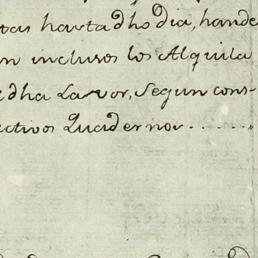 tas hasta dho dia, hande
n inclusos los Alquila
dha Lavor, Segun cons-
ectivos Quadernos......